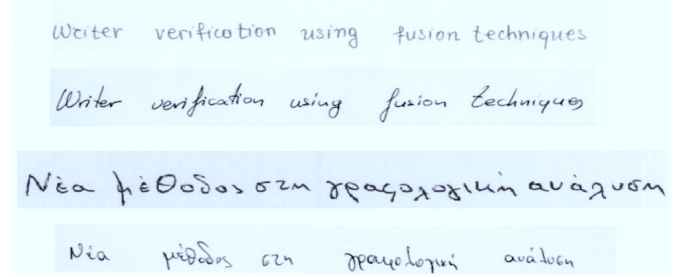 Writer verification using fusion techniques
Writer verification using fusion techniques
Νέα μέθοδος στη γραφολογική ανάλυση
Νέα μέθοδος στη γραφολογική ανάλυση